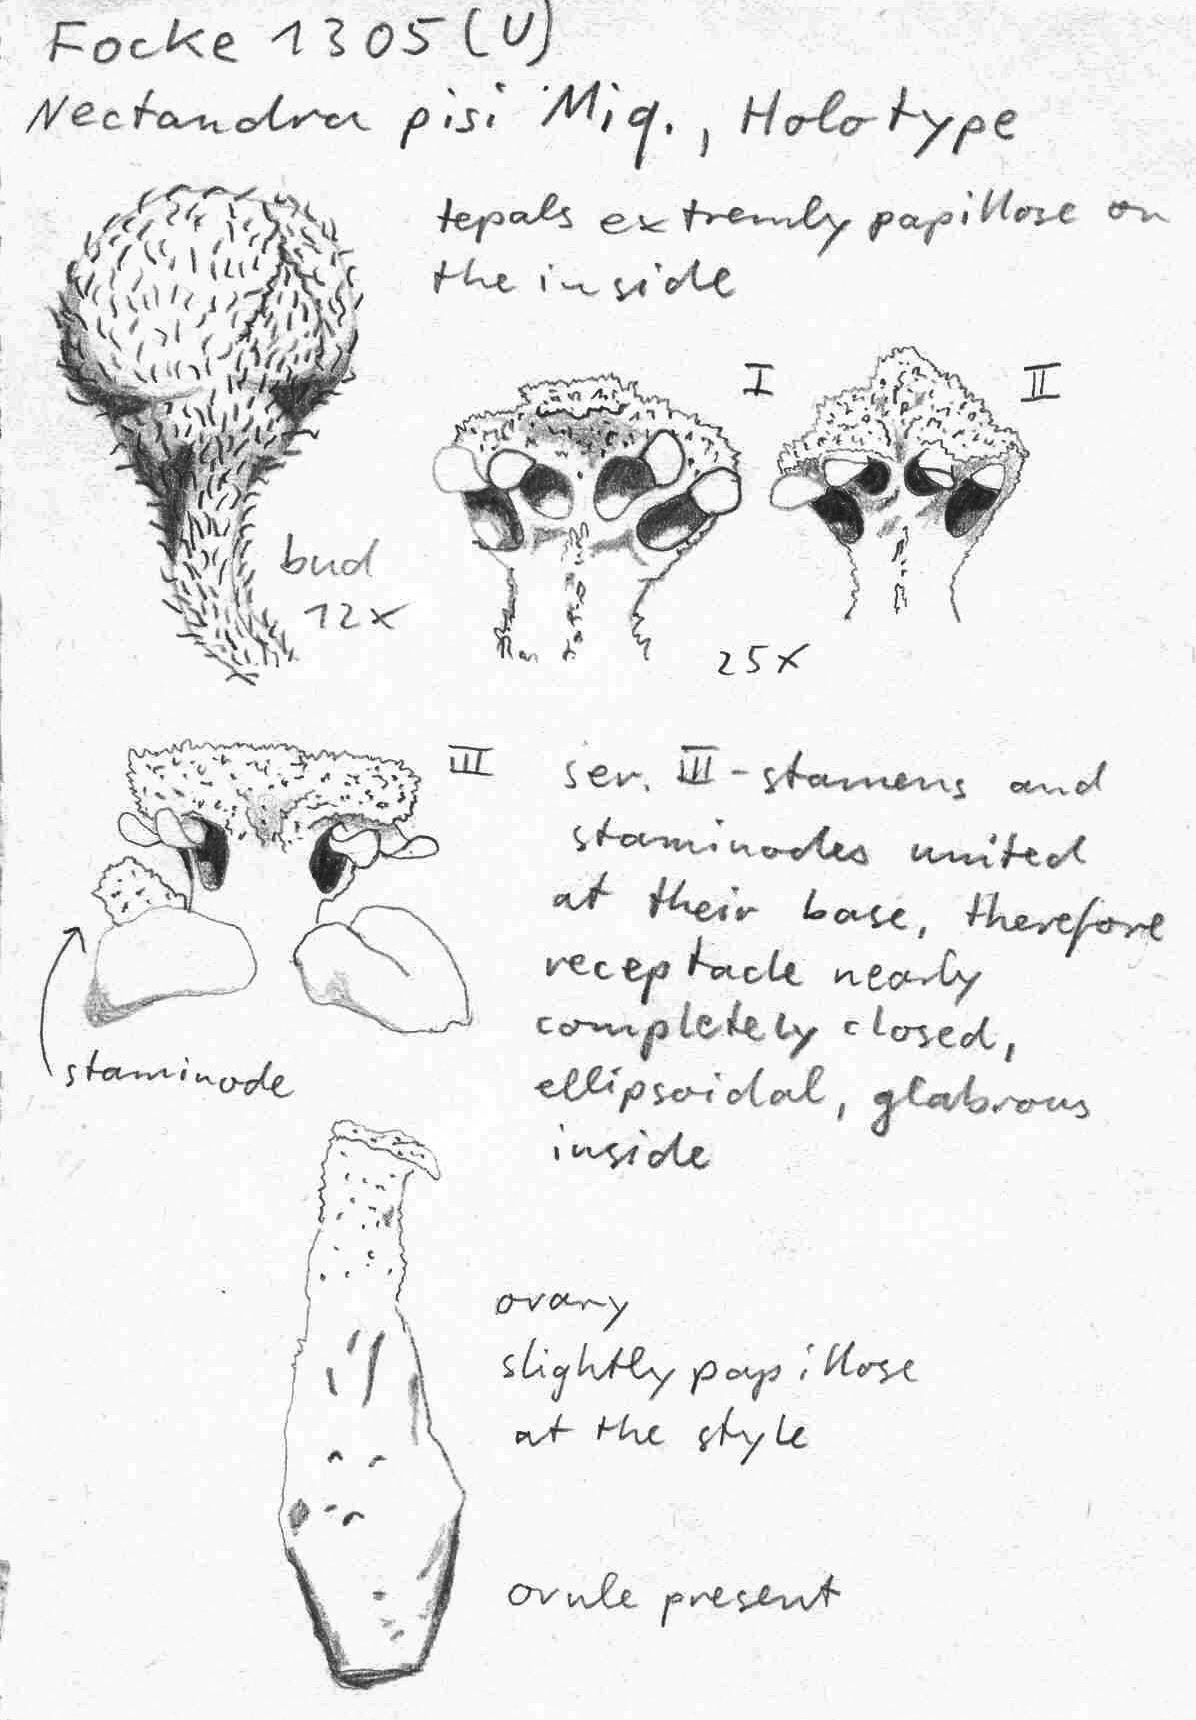 Focke 1305 (U)
Nectandra pisi Miq., Holotype
tepals extremly papillose on
the inside
I
II
bud
12x
25x
III
ser. III-stamens and
staminodes united
at their base, therefore
receptacle nearly
completely closed,
ellipsoidal, glabrous
inside
staminode
ovary
slightly papillose
at the style
ovule present